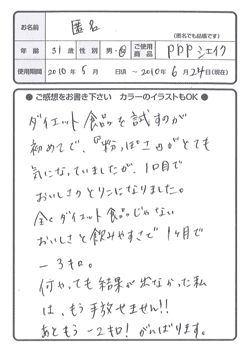 お名前 匿名
（匿名でも結構です）
年齢 31歳 性別 男・女 ご使用商品 PPPシェイク
使用期間 2010年5月 日頃 〜 2010年6月24日(現在)
● ご感想をお書き下さい カラーのイラストもOK ●
ダイエット食品を試すのが
初めてで、『粉っぽさ』がとても
気になっていましたが、1口目で
おいしさのとりこになりました。
全くダイエット食品じゃない
おいしさと飲みやすさで1ヶ月で
－3キロ。
何やっても結果が出なかった私
は、もう手放せません!!
あともう－2キロ！がんばります。